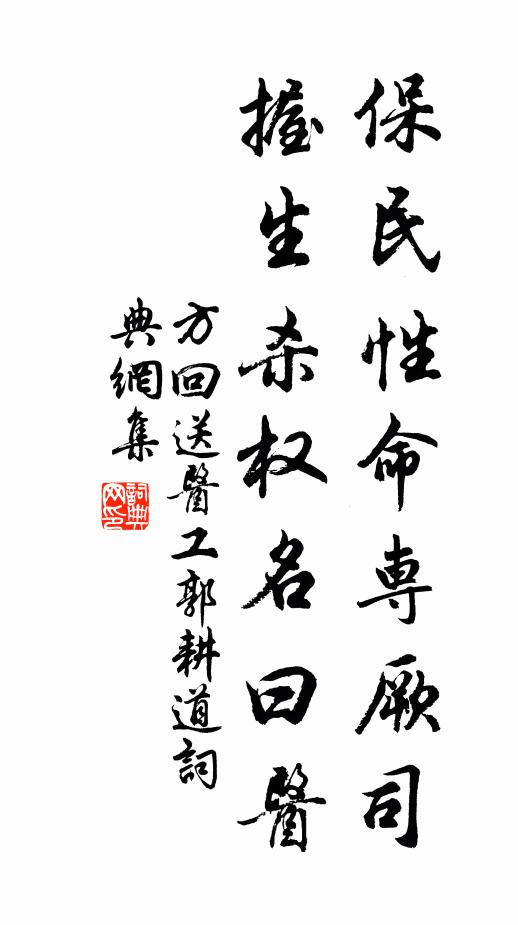 保民性命専厥司
握生杀权名曰醫
方回送醫工郭耕道詞
典網集
詞典网印